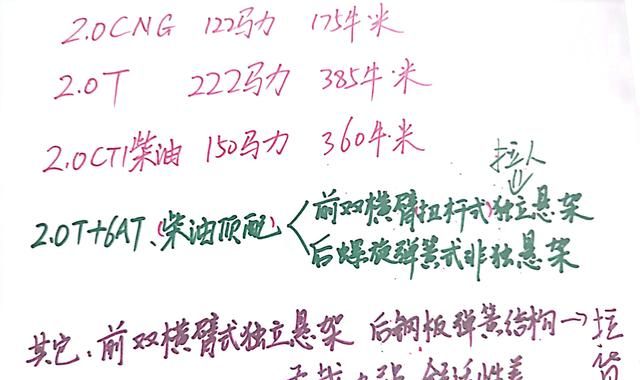 2.0CNG 122马力 175牛·米
2.0T 222马力 385牛·米
2.0CTI柴油 150马力 360牛·米
拉人
2.0T+6AT、(柴油顶配)
前双横臂扭杆式独立悬架
后螺旋弹簧式非独悬架
其它、前双横臂式独立悬架 后钢板弹簧结构→拉货
舒适性差